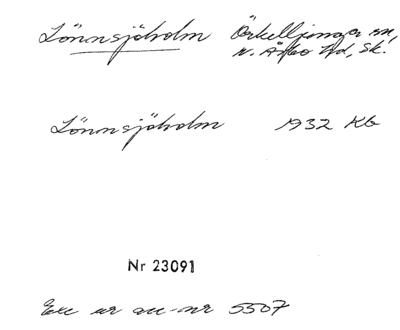 Lönnsjöholm Örkelljunga sn,
N. Åsbo hd, Sk.
Lönnsjöholm 1932 KG
Nr 23091
Exc ur acc-nr 5507